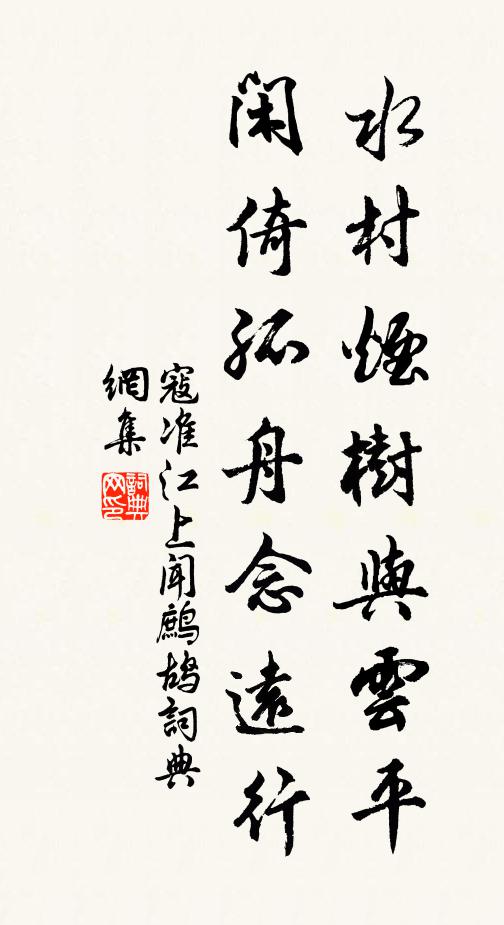 水村煙樹與雲平
閑倚孤舟念遠行
寇准江上聞鷓鴣詞典
網集
詞典
网印